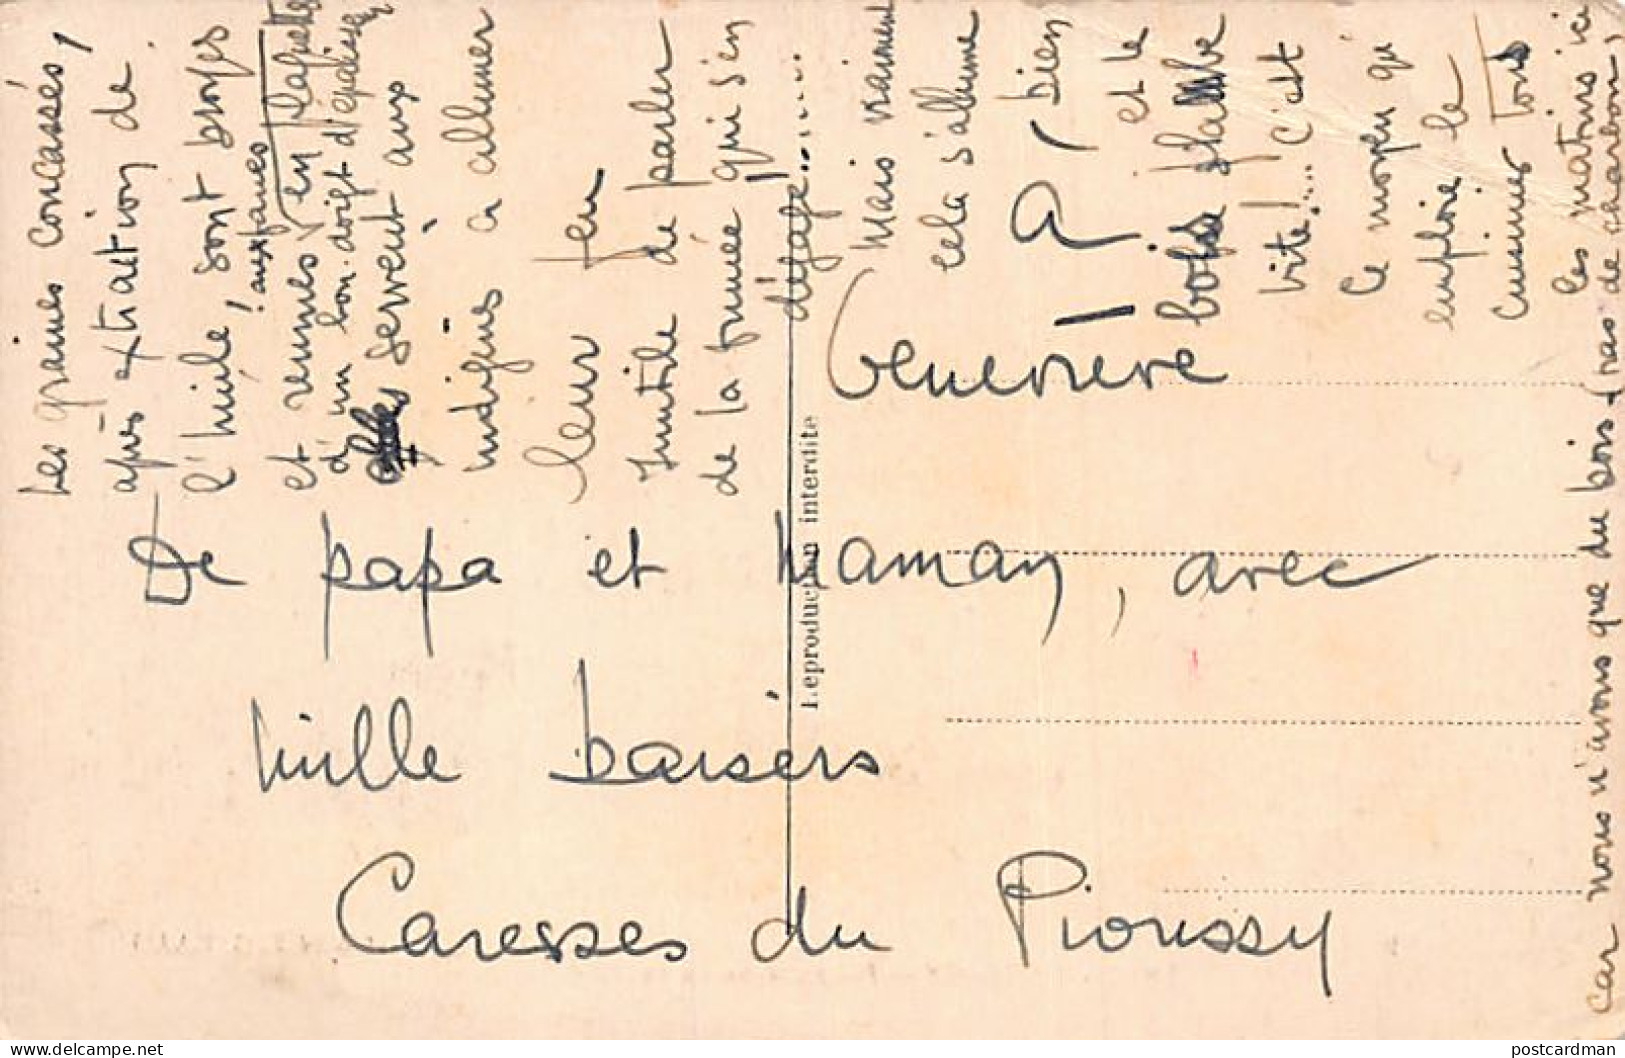 À
Geneviève
De papa et Maman, avec
mille baisers
Caresses du Pioussy
Les graines concassées,
après extraction de
l'huile, sont broyées
et réunies en plaquettes
d'un bon doigt d'épaisseur
servent aux
indigènes à allumer
leur feu
Inutile de parler
de la fumée qui s'en
dégage......
Mais vraiment
cela s'allume
bien
et le
bois flambe
vite!... c'est
Ce moyen qu'
emploie le
Cuisinier tous
les matins ici
car nous n'avons que du bois (pas de charbon,
Reproduction interdite
postcardman